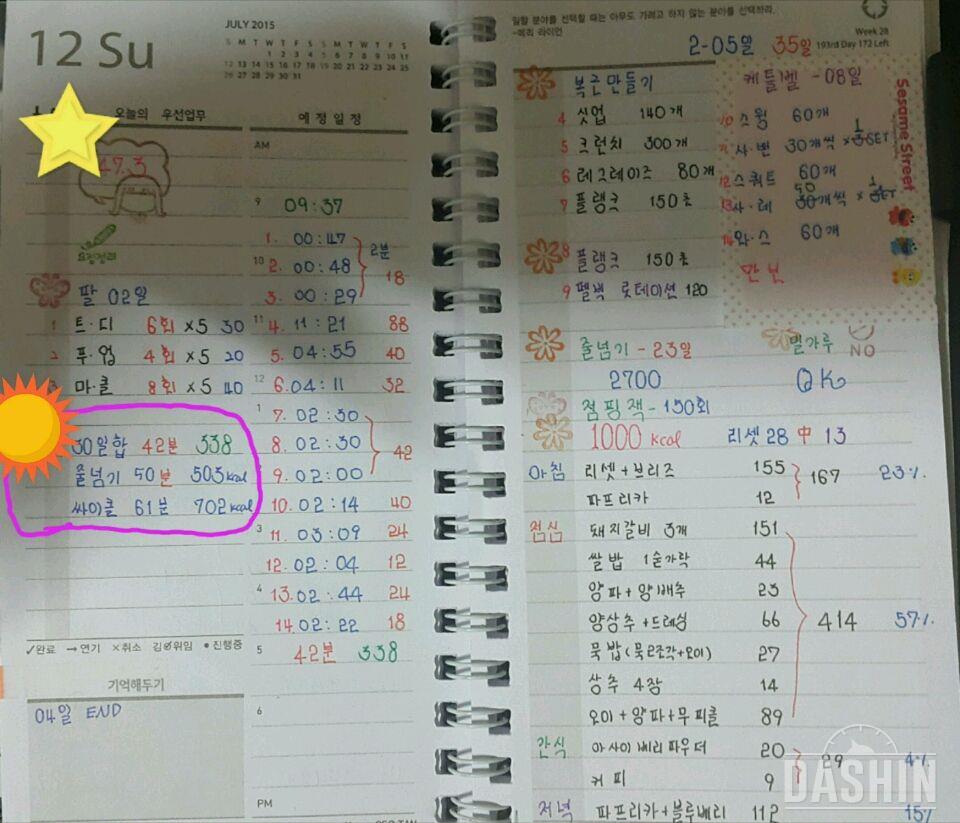 12 Su
JULY 2015
S M T W T F S S M T W T F S
1 2 3 4 5 6 7 8 9 10 11
12 13 14 15 16 17 18 19 20 21 22 23 24 25
26 27 28 29 30 31
오늘의 우선업무
47.3
요점정리
팔 02일
1 트·디 6회 ×5 30
2 푸·업 4회 ×5 20
마·클 8회 ×5 40
30일합 42분 338
줄넘기 50분 503kcal
싸이클 61분 702kcal
✓완료 →연기 ×취소 김∅위임 •진행중
기억해두기
04일 END
예정일정
AM
9 09:37
1. 00:47
10 2. 00:48 2분 18
3. 00:29
11 4. 11:21 88
5. 04:55 40
12 6. 04:11 32
1 7. 02:30
8. 02:30 42
9. 02:00
10. 02:14 40
3 11. 03:09 24
12. 02:04 12
4 13. 02:44 24
14. 02:22 18
5 42분 338
6
PM
일할 분야를 선택할 때는 아무도 가려고 하지 않는 분야를 선택하라.
-메리 라이언
Week 28
193rd Day 172 Left
2-05일 35일
복근만들기
4 싯업 140개
5 크런치 300개
6 레그레이즈 80개
7 플랭크 150초
8 플랭크 150초
9 펠빅 로테이션 120
케틀벨 -08일
10 스윙 60개
11 사·벤 30개씩 × 1 SET
12 스쿼트 60개
13 사·레 50 30개씩 × 1 SET
14 와·스 60개
만보
Sesame Street
줄넘기 - 23일
2700
밀가루 NO
OK
점핑잭 - 150회
1000 kcal 리셋 28 中 13
아침 리셋+브리즈 155
파프리카 12
167 23%
점심 돼지갈비 3개 151
쌀밥 1숟가락 44
양파+양배추 23
양상추+드레싱 66
묵밥(묵2조각+오이) 27
상추 4장 14
오이+양파+무피클 89
414 57%
간식 아사이베리파우더 20
커피 9
29 4%
저녁 파프리카+블루베리 112 15%
DASHIN